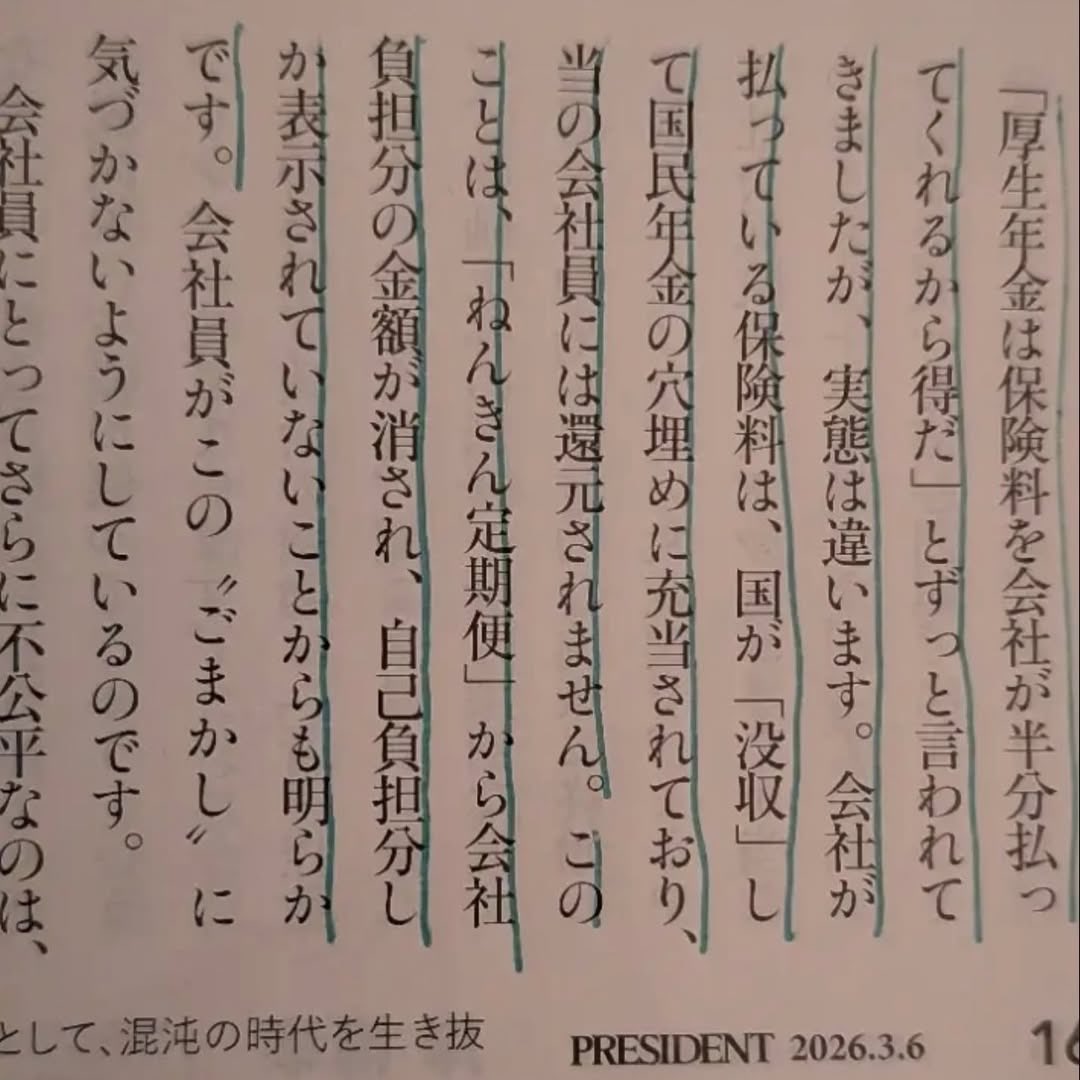 「厚生年金は保険料を会社が半分払っ
てくれるから得だ」とずっと言われて
きましたが、実態は違います。会社が
払っている保険料は、国が「没収」し
て国民年金の穴埋めに充当されており、
当の会社員には還元されません。この
ことは、「ねんきん定期便」から会社
負担分の金額が消され、自己負担分し
か表示されていないことからも明らか
です。会社員がこの〝ごまかし〟に
気づかないようにしているのです。
会社員にとってさらに不公平なのは、
として、混沌の時代を生き抜
PRESIDENT 2026.3.6